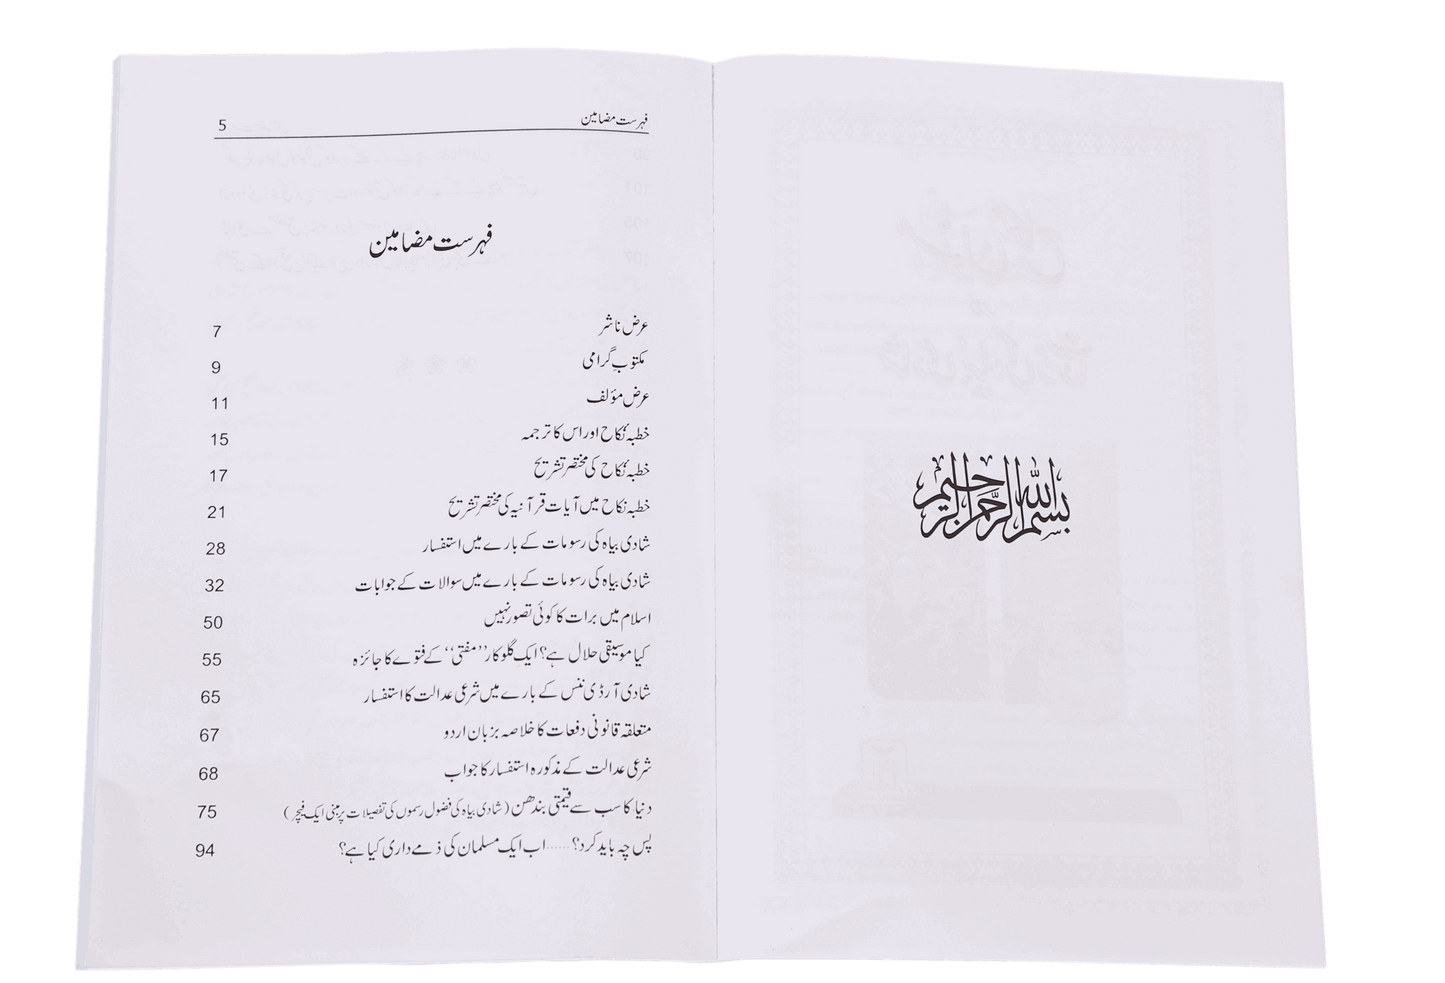 بسم الله الرحمن الرحيم
فہرست مضامین 5
فہرست مضامین
عرض ناشر 7
مکتوبِ گرامی 9
عرض مؤلف 11
خطبہ نکاح اور اس کا ترجمہ 15
خطبہ نکاح کی مختصر تشریح 17
خطبہ نکاح میں آیات قرآنیہ کی مختصر تشریح 21
شادی بیاہ کی رسومات کے بارے میں استفسار 28
شادی بیاہ کی رسومات کے بارے میں سوالات کے جوابات 32
اسلام میں برات کا کوئی تصور نہیں 50
کیا موسیقی حلال ہے؟ ایک گلوکار ”مفتی“ کے فتوے کا جائزہ 55
شادی آرڈی ننس کے بارے میں شرعی عدالت کا استفسار 65
متعلقہ قانونی دفعات کا خلاصہ بزبان اردو 67
شرعی عدالت کے مذکورہ استفسار کا جواب 68
دنیا کا سب سے قیمتی بندھن (شادی بیاہ کی فضول رسموں کی تفصیلات پر مبنی ایک فیچر) 75
پس چہ باید کرد؟ ...... اب ایک مسلمان کی ذمے داری کیا ہے؟ 94